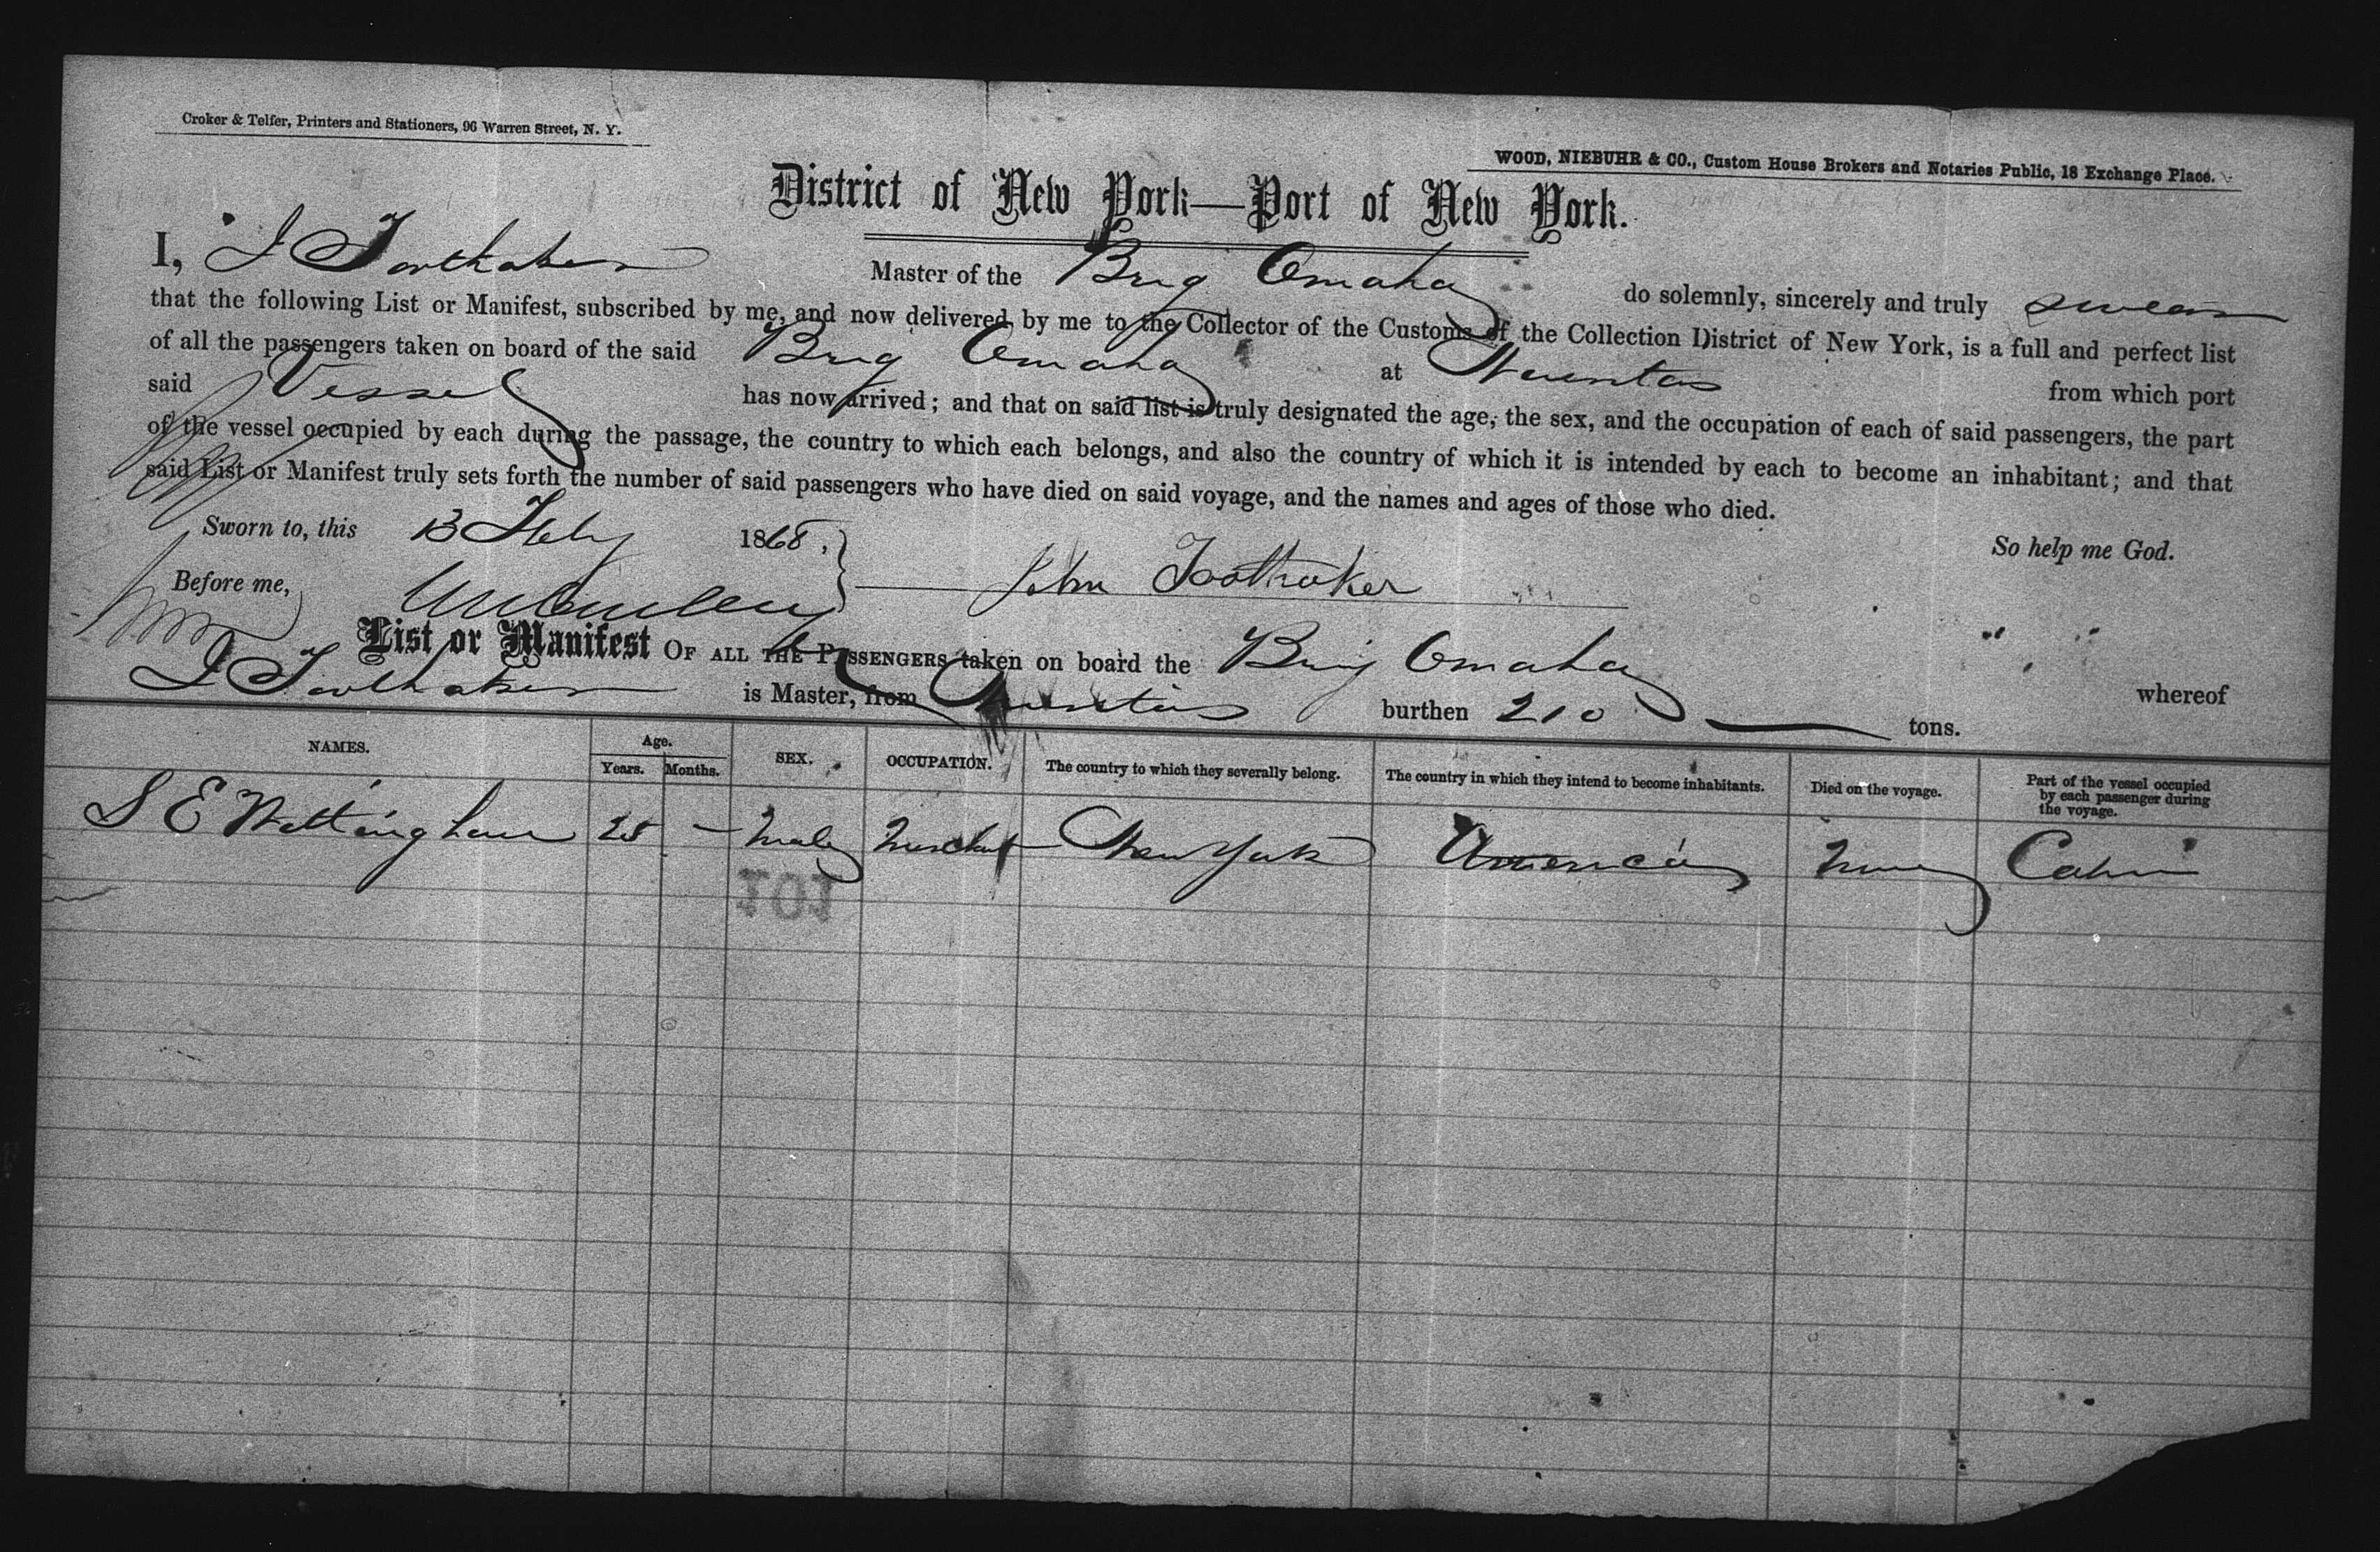 Croker & Telfer, Printers and Stationers, 96 Warren Street, N. Y.
WOOD, NIEBUHR & CO., Custom House Brokers and Notaries Public, 18 Exchange Place.
District of New York—Port of New York.
I, J Toothaker Master of the Brig Omaha do solemnly, sincerely and truly swear
that the following List or Manifest, subscribed by me, and now delivered by me to the Collector of the Customs of the Collection District of New York, is a full and perfect list
of all the passengers taken on board of the said Brig Omaha at from which port
said Vessel has now arrived; and that on said list is truly designated the age, the sex, and the occupation of each of said passengers, the part
of the vessel occupied by each during the passage, the country to which each belongs, and also the country of which it is intended by each to become an inhabitant; and that
said List or Manifest truly sets forth the number of said passengers who have died on said voyage, and the names and ages of those who died.
So help me God.
Sworn to, this 13 Feby 1868,
John Toothaker
Before me,
List or Manifest OF ALL THE PASSENGERS taken on board the Brig Omaha whereof
J Toothaker is Master, from burthen 210 tons.
NAMES. Age. Years. Months. SEX. OCCUPATION. The country to which they severally belong. The country in which they intend to become inhabitants. Died on the voyage. Part of the vessel occupied by each passenger during the voyage.
S E Nottingham 28 — Male Merchant New York America None Cabin
101